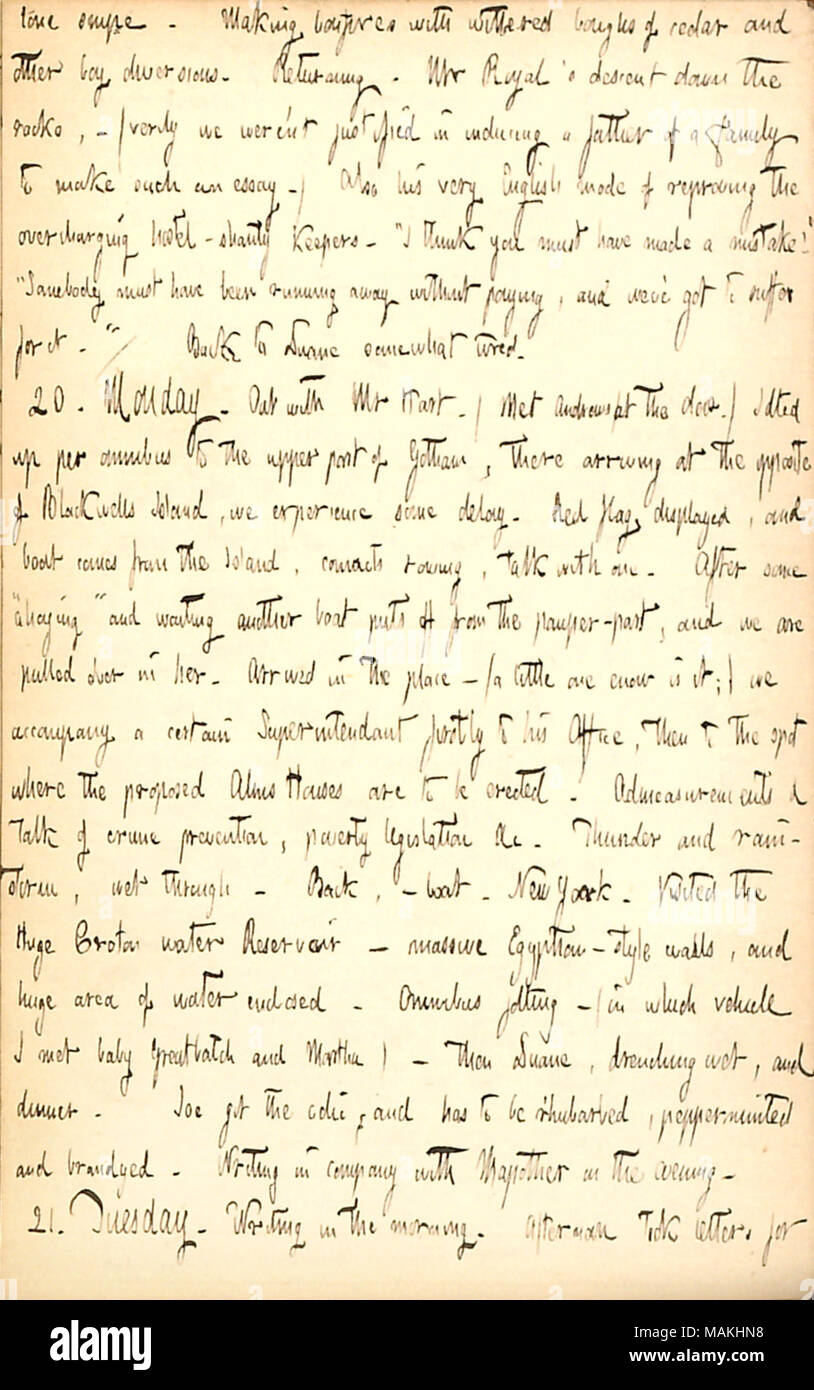 tone snipe - Making bonfires with withered boughs of cedar and
other boy diversions. Returning. Mr Royal's descent down the
rocks, - (verily we weren't justified in inducing a father of a family
to make such an essay -) Also his very English mode of reproving the
overcharging hotel-shanty keepers - "I think you must have made a mistake!"
"Somebody must have been running away without paying, and we've got to suffer
for it - "/ Back to Duane somewhat tired.
20. Monday. Out with Mr Hart. (Met Andrews at the door.) Jolted
up per omnibus to the upper part of Gotham, there arriving at the opposite
of Blackwells Island, we experience some delay. Red flag displayed, and
boat comes from the Island, convicts rowing, talk with one. After some
"ahoying" and waiting another boat puts off from the pauper-part, and we are
pulled over in her. Arrived in the place - (a little one enow is it;) we
accompany a certain Superintendant firstly to his Office, then to the spot
where the proposed Alms Houses are to be erected. Admeasurements &
talk of crime prevention, poverty legislation &c. Thunder and rain-
storm, wet through - Back, - boat - New York. Visited the
Huge Croton water Reservoir - massive Egyptian-style walls, and
huge area of water enclosed. Omnibus jolting - (in which vehicle
I met baby Greatbatch and Martha) - then Duane, drenching wet, and
dinner. Joe got the colic, and has to be rhubarbed, pepperminted
and brandyed. Writing in company with Mapother in the evening.
21. Tuesday. Writing in the morning. Afternoon took letters for
alamy
Image ID: MAKHN8
www.alamy.com